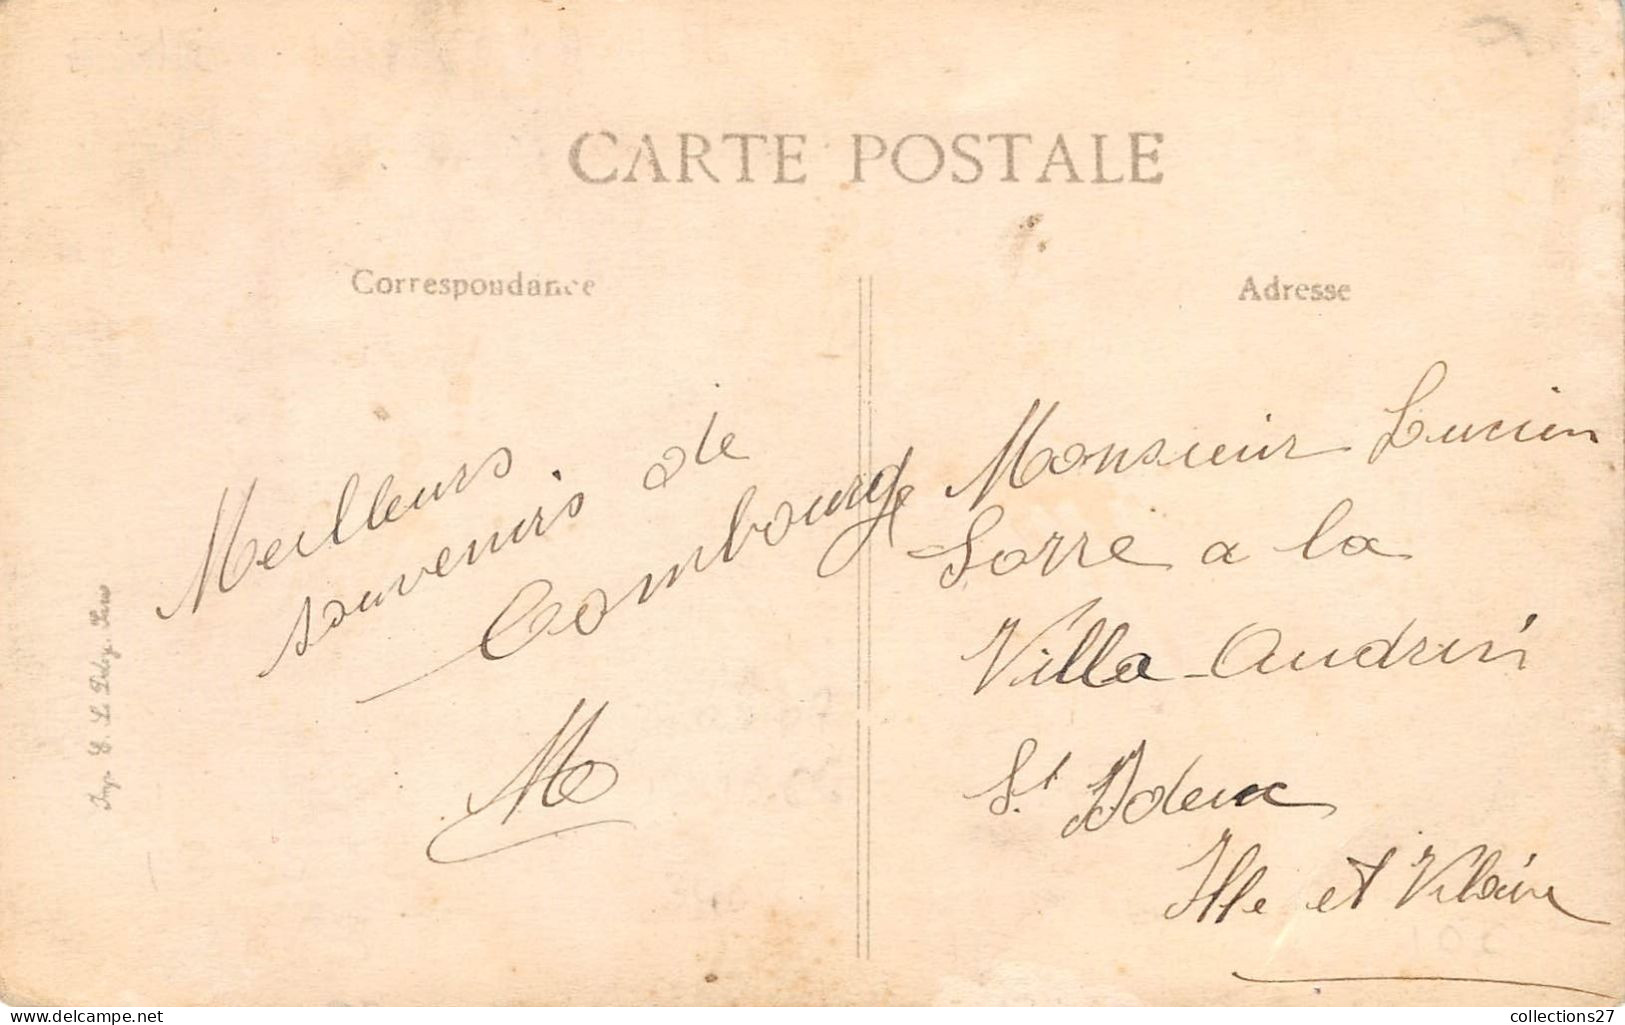 CARTE POSTALE
Correspondance
Adresse
Meilleurs
souvenirs de
Combourg
Monsieur Lucien
Sorre a la
Villa Audrin
St
Ille et Vilaine
Imp. Paris
collections27